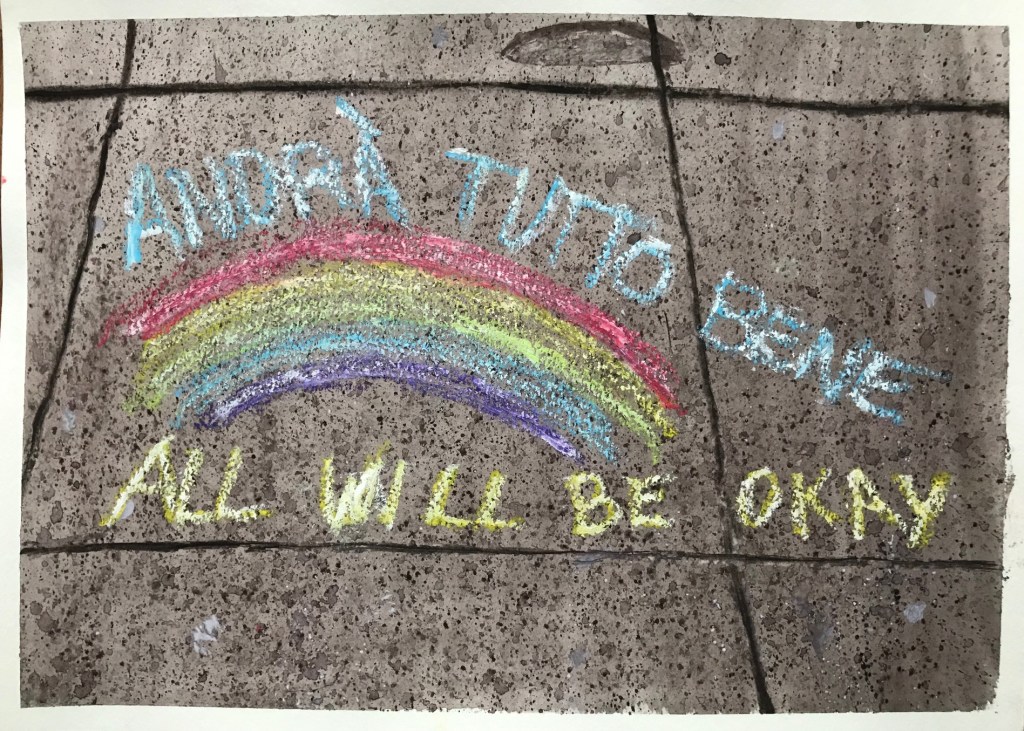 ANDRÀ TUTTO BENE
ALL WILL BE OKAY